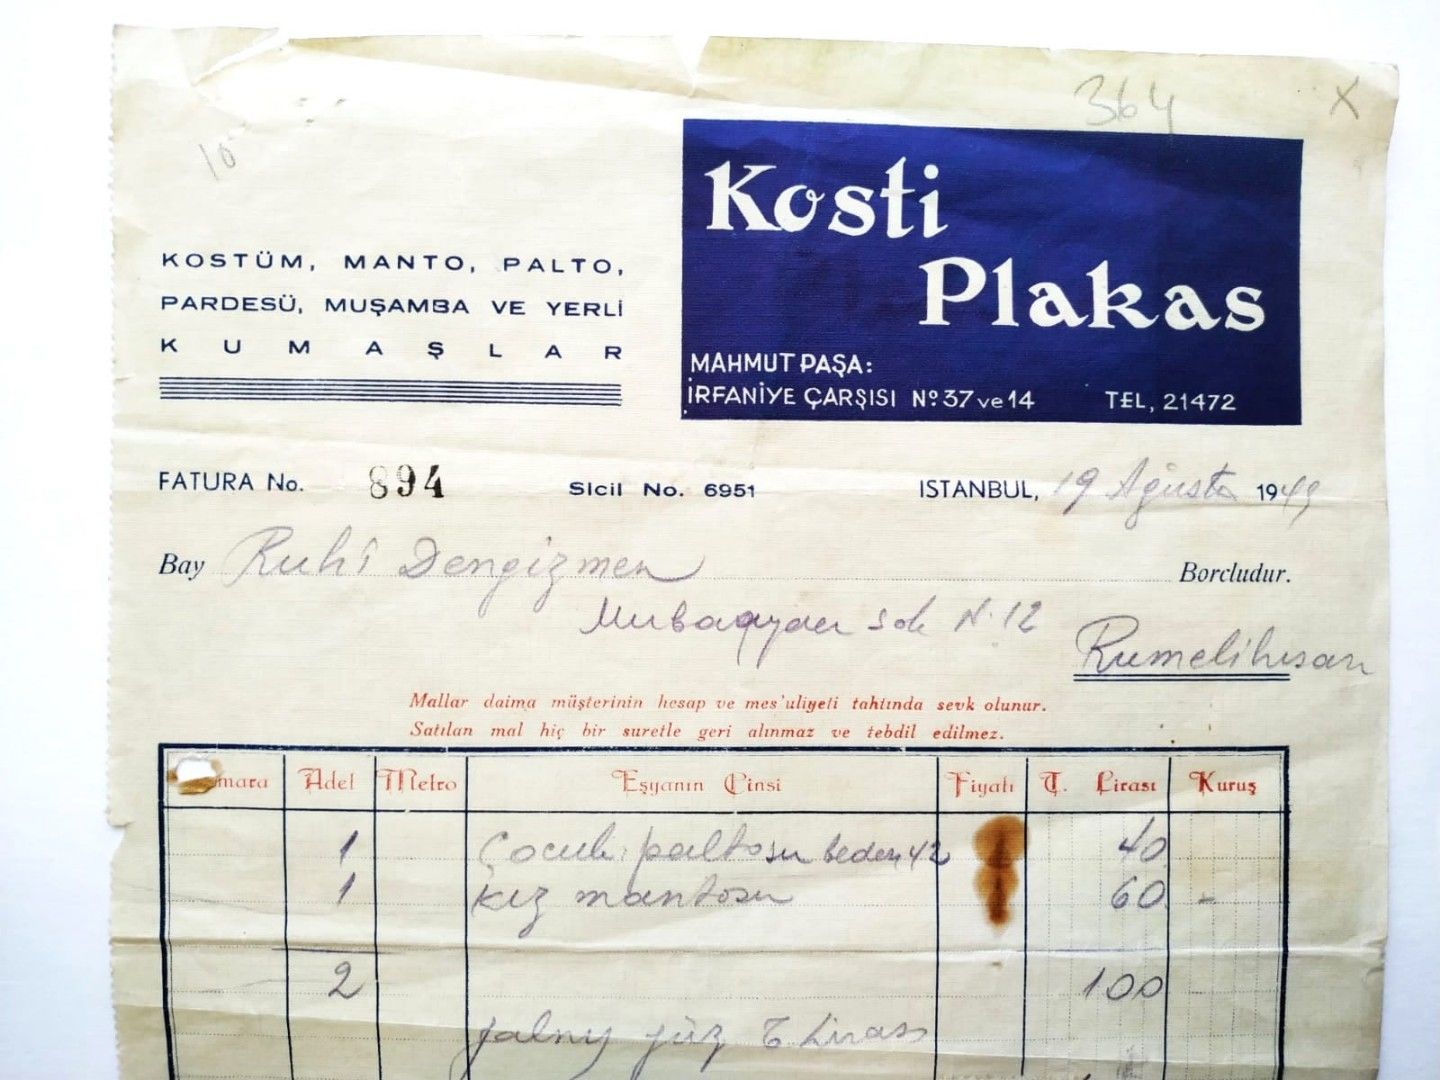 364 X
10
Kosti
Plakas
MAHMUT PAŞA:
İRFANİYE ÇARŞISI No 37 ve 14 TEL, 21472
KOSTÜM, MANTO, PALTO,
PARDESÜ, MUŞAMBA VE YERLİ
KUMAŞLAR
FATURA No. 894 Sicil No. 6951 ISTANBUL, 19 Ağusto 1949
Bay Ruhî Dengizmen Borcludur.
sok N. 12
Rumelihisarı
Mallar daima müşterinin hesap ve mes'uliyeti tahtında sevk olunur.
Satılan mal hiç bir suretle geri alınmaz ve tebdil edilmez.
mara Adet Metro Eşyanın Cinsi Fiyatı T. Lirası Kuruş
1 Çocuk paltosu beden 42 40
1 Kız mantosu 60 -
2 100
yalnız yüz T Lirası